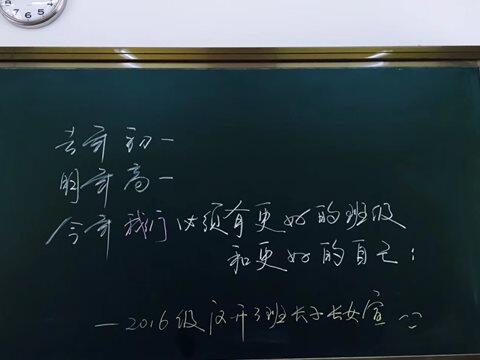 去年 初一
明年 高一
今年 我们必须有更好的班级
和更好的自己！
—2016级 3班长子长女宣